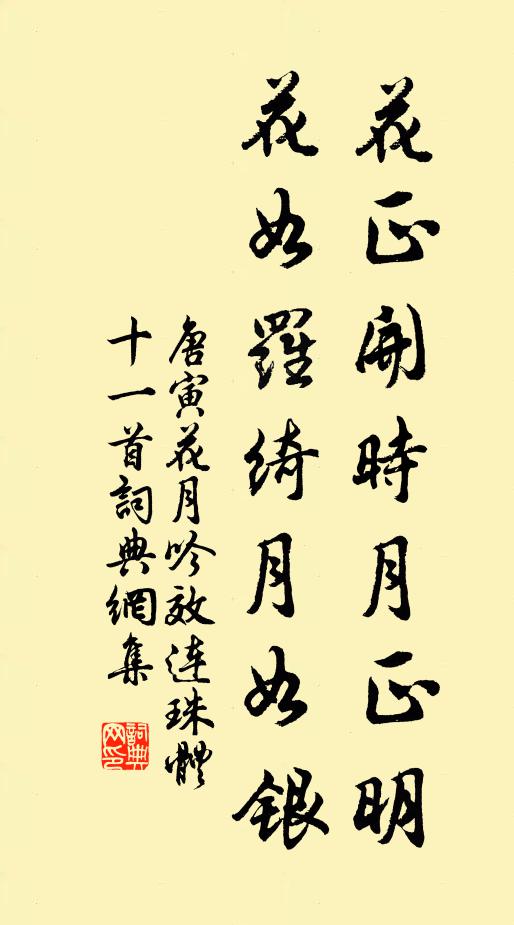 花正開時月正明
花如羅綺月如銀
唐寅花月吟效连珠體
十一首詞典網集
詞典网印